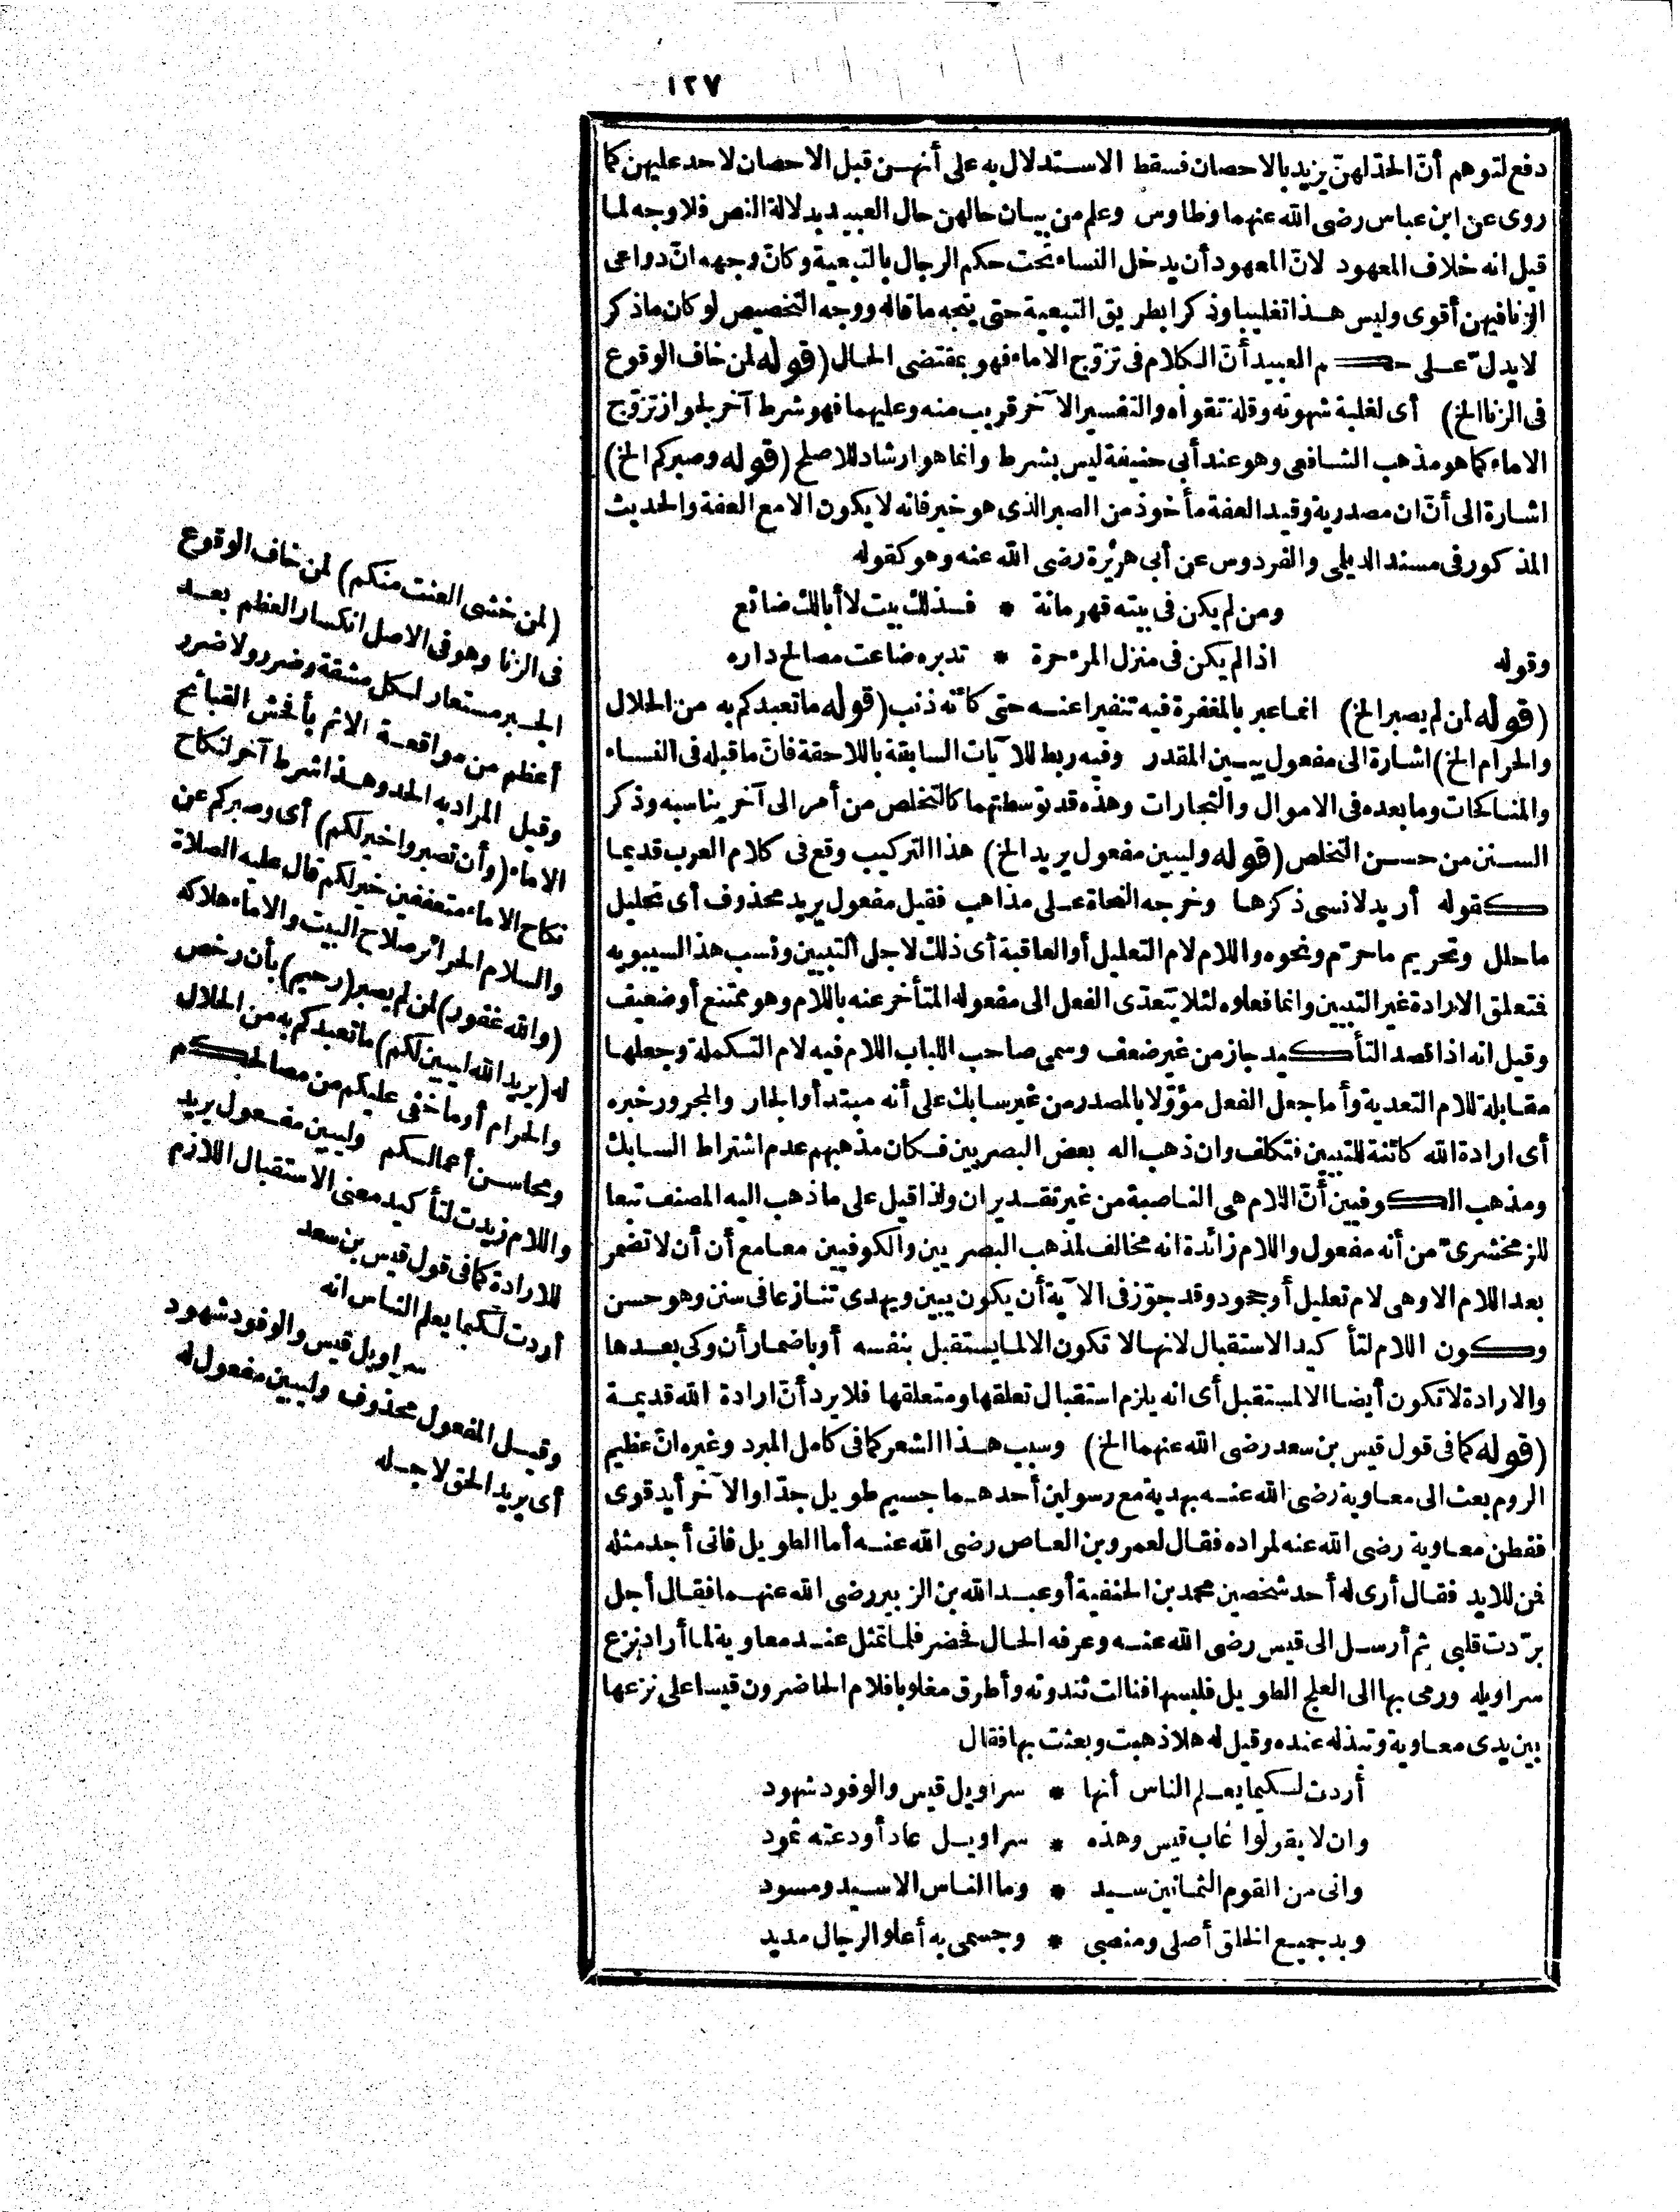 ١٢٧
دفع لتوهم أنّ الحدّ لهنّ يزيد بالاحصان فسقط الاستدلال به على أنهن قبل الاحصان لا حد عليهن كما
روى عن ابن عباس رضى الله عنهما وطاوس وعلم من بيان حالهن حال العبيد بدلالة النص فلا وجه لما
قيل انه خلاف المعهود لانّ المعهود أن يدخل النساء تحت حكم الرجال بالتبعية وكانّ وجهه انّ دواعى
الزنا فيهن أقوى وليس هذا تغليبا وذكرا بطريق التبعية حتى يتجه ما قاله ووجه التخصيص لو كان ما ذكر
لا يدلّ على حكم العبيد أنّ الكلام فى تزوّج الاماء فهو بمقتضى الحال (قوله لمن خاف الوقوع
فى الزنا الخ) أى لغلبة شهوته وقلة تقواه والتفسير الآخر قريب منه وعليهما فهو شرط آخر لجواز تزوّج
الاماء كما هو مذهب الشافعى وهو عند أبى حنيفة ليس بشرط وانما هو ارشاد للاصلح (قوله وصبركم الخ)
اشارة الى أنّ ان مصدرية وقيد العفة مأخوذ من الصبر الذى هو خير فانه لا يكون الا مع العفة والحديث
المذكور فى مسند الديلمى والفردوس عن أبى هريرة رضى الله عنه وهو كقوله
ومن لم يكن فى بيته قهرمانة * فذلك بيت لا أبا لك ضائع
وقوله اذا لم يكن فى منزل المرء حرة * تدبره ضاعت مصالح داره
(قوله لمن لم يصبر الخ) انما عبر بالمغفرة فيه تنفيرا عنه حتى كأنه ذنب (قوله ما تعبدكم به من الحلال
والحرام الخ) اشارة الى مفعول يبين المقدر وفيه ربط للآيات السابقة باللاحقة فانّ ما قبله فى النساء
والمناكحات وما بعده فى الاموال والتجارات وهذه قد توسطتهما كالتخلص من أمر الى آخر يناسبه وذكر
السنن من حسن التخلص (قوله وليبين مفعول يريد الخ) هذا التركيب وقع فى كلام العرب قديما
كقوله أريد لانسى ذكرها وخرجه النحاة على مذاهب فقيل مفعول يريد محذوف أى تحليل
ما حلل وتحريم ما حرّم ونحوه واللام لام التعليل أو العاقبة أى ذلك لاجل التبيين ونسب هذا لسيبويه
فتعلق الارادة غير التبيين وانما فعلوه لئلا يتعدّى الفعل الى مفعوله المتأخر عنه باللام وهو ممتنع أو ضعيف
وقيل انه اذا قصد التأكيد جاز من غير ضعف وسمى صاحب اللباب اللام فيه لام التكملة وجعلها
مقابلة للام التعدية وأما جعل الفعل مؤوّلا بالمصدر من غير سابك على أنه مبتدأ والجار والمجرور خبره
أى ارادة الله كائنة للتبيين فتكلف وان ذهب اله بعض البصريين فكان مذهبهم عدم اشتراط السابك
ومذهب الكوفيين أنّ اللام هى الناصبة من غير تقدير ان ولذا قيل على ما ذهب اليه المصنف تبعا
للزمخشرىّ من أنه مفعول واللام زائدة انه مخالف لمذهب البصريين والكوفيين معا مع أن أن لا تضمر
بعد اللام الا وهى لام تعليل أو جحود وقد جوّز فى الآية أن يكون يبين ويهدى تنازعا فى سنن وهو حسن
وكون اللام لتأكيد الاستقبال لانها لا تكون الا لما يستقبل بنفسه أو باضمار أن وكى بعدها
والارادة لا تكون أيضا الا لمستقبل أى انه يلزم استقبال تعلقها ومتعلقها فلا يرد أنّ ارادة الله قديمة
(قوله كما فى قول قيس بن سعد رضى الله عنهما الخ) وسبب هذا الشعر كما فى كامل المبرد وغيره انّ عظيم
الروم بعث الى معاوية رضى الله عنه بهدية مع رسولين أحدهما جسيم طويل جدّا والآخر أيد قوى
ففطن معاوية رضى الله عنه لمراده فقال لعمرو بن العاص رضى الله عنه أما الطويل فانى أجد مثله
فمن للايد فقال أرى له أحد شخصين محمد بن الحنفية أو عبد الله بن الزبير رضى الله عنهما فقال أجل
برّدت قلبى ثم أرسل الى قيس رضى الله عنه وعرفه الحال فحضر فلما تمثل عند معاوية لما أراد نزع
سراويله ورمى بها الى العلج الطويل فلبسها فنالت ثندوته وأطرق مغلوبا فلام الحاضرون قيسا على نزعها
بين يدى معاوية وتبذله عنده وقيل له هلا ذهبت وبعثت بها فقال
أردت لكيما يعلم الناس أنها * سراويل قيس والوفود شهود
وان لا يقولوا غاب قيس وهذه * سراويل عاد أودعته ثمود
وانى من القوم الثمانين سيد * وما الناس الا سيد ومسود
وبد جميع الخلق أصلى ومنصبى * وجسمى به أعلو الرجال مديد
(لمن خشى العنت منكم) لمن خاف الوقوع
فى الزنا وهو فى الاصل انكسار العظم بعد
الجبر مستعار لكل مشقة وضرر ولا ضرر
أعظم من مواقعة الاثم بأفحش القبائح
وقيل المراد به الحد وهذا شرط آخر لنكاح
الاماء (وأن تصبروا خير لكم) أى وصبركم عن
نكاح الاماء متعففين خير لكم قال عليه الصلاة
والسلام الحرائر صلاح البيت والاماء هلاكه
(والله غفور) لمن لم يصبر (رحيم) بأن رخص
له (يريد الله ليبين لكم) ما تعبدكم به من الحلال
والحرام أو ما خفى عليكم من مصالحكم
ومحاسن أعمالكم وليبين مفعول يريد
واللام زيدت لتأكيد معنى الاستقبال اللازم
للارادة كما فى قول قيس بن سعد
أردت لكيما يعلم الناس انه
سراويل قيس والوفود شهود
وقيل المفعول محذوف وليبين مفعول له
أى يريد الحق لاجله